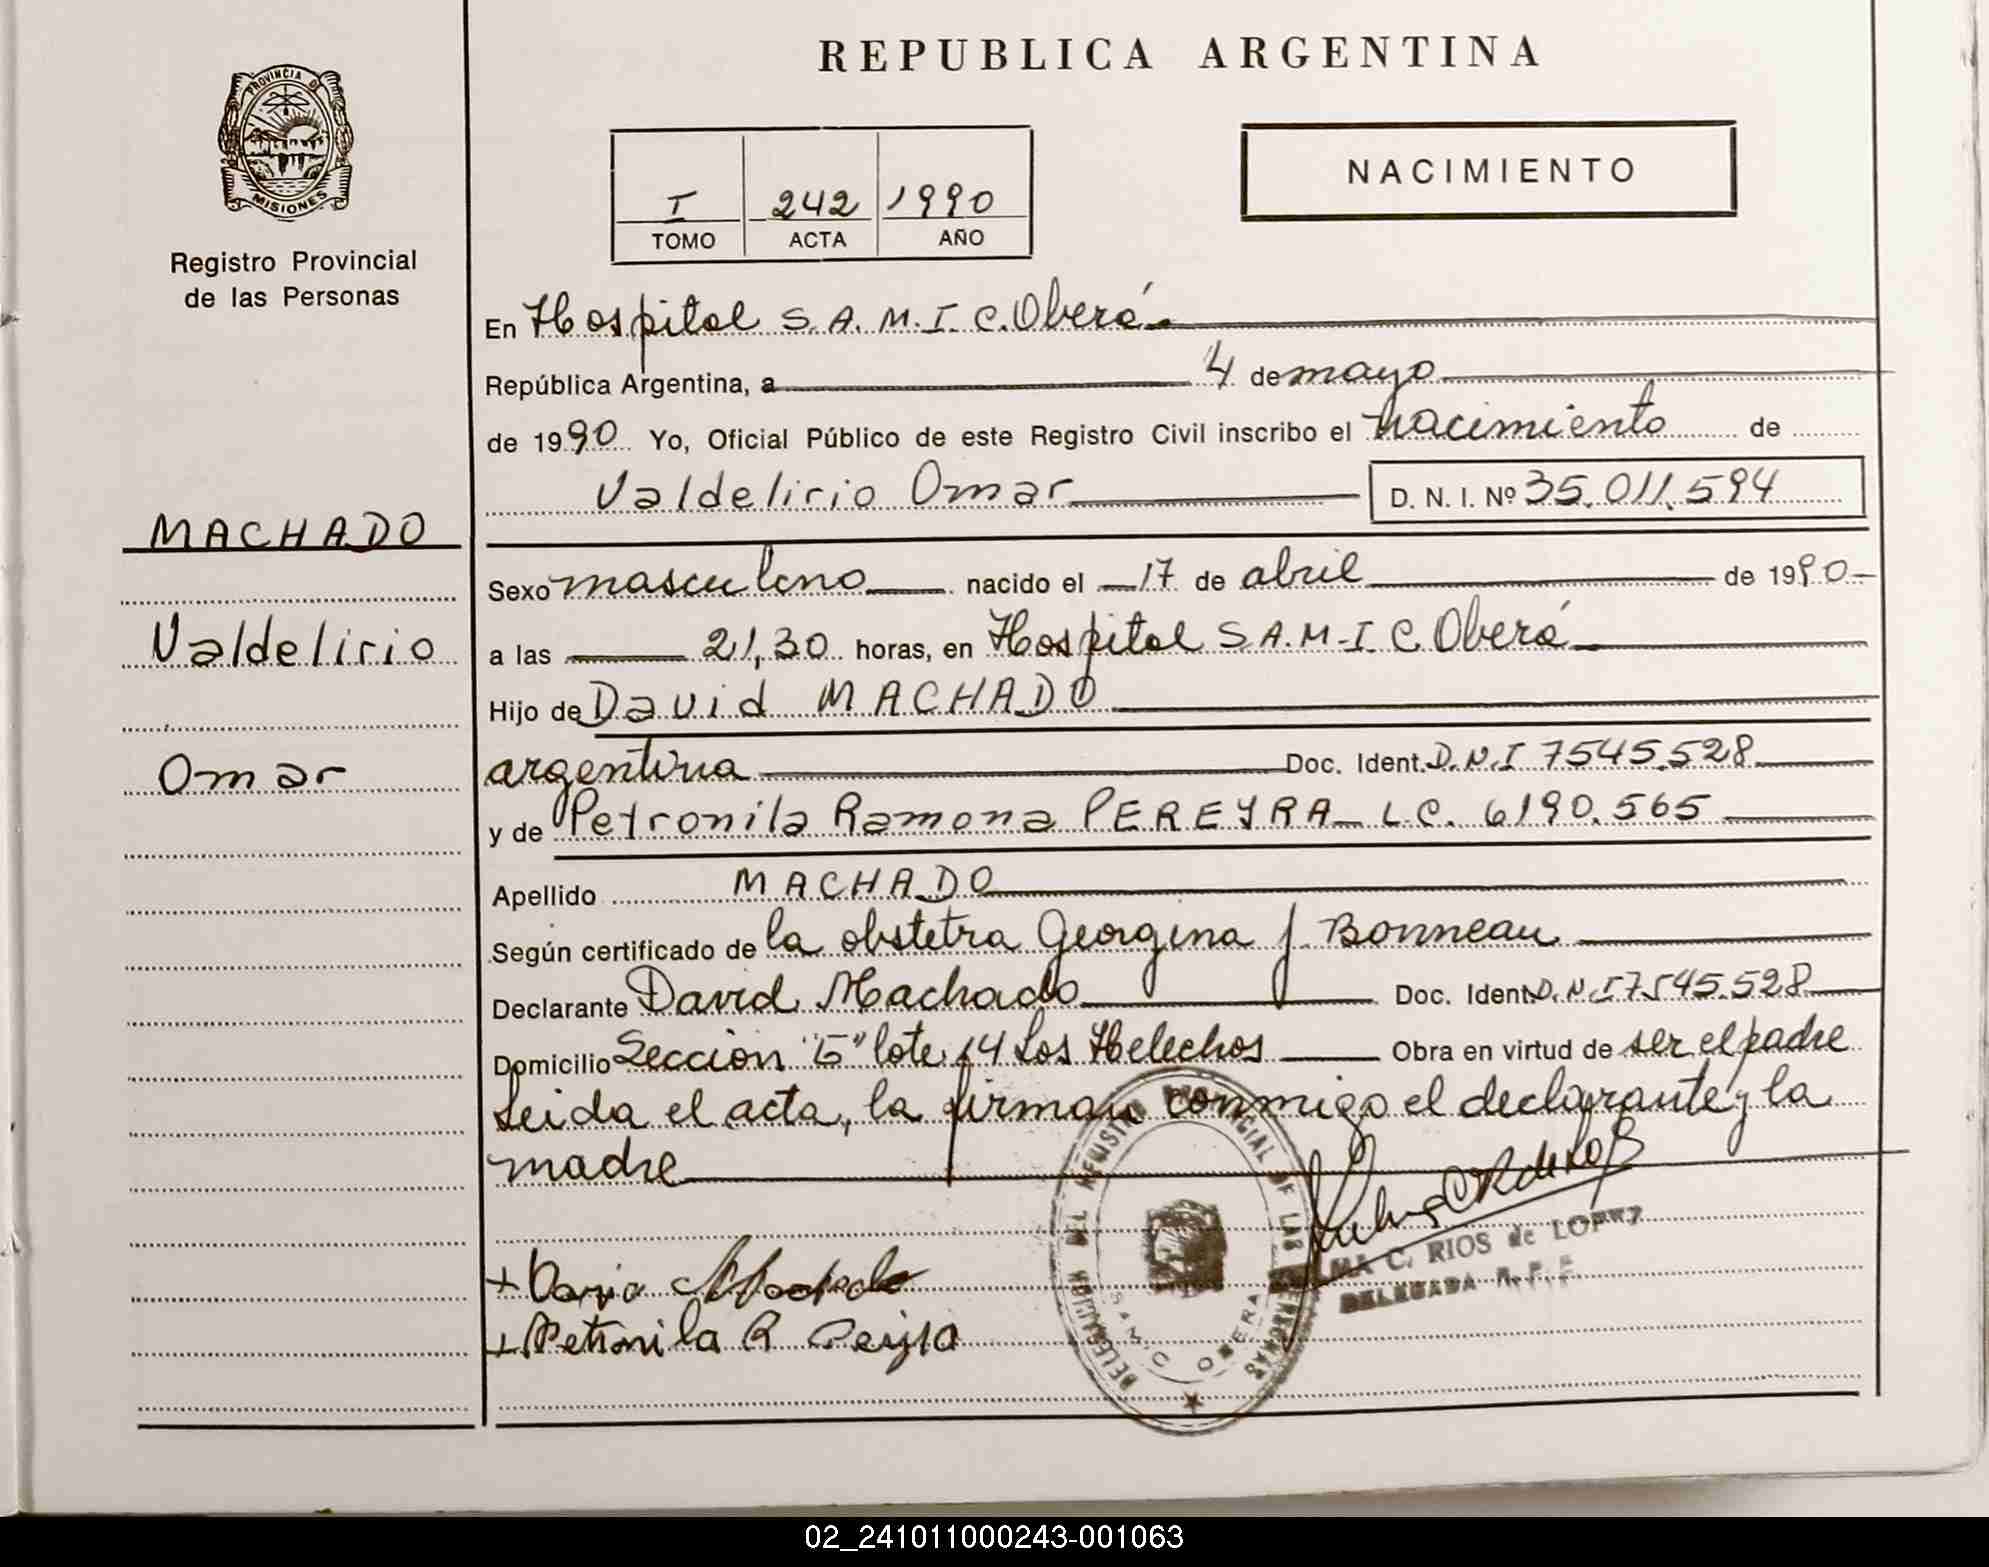 REPUBLICA ARGENTINA
PROVINCIA DE
MISIONES
Registro Provincial
de las Personas
NACIMIENTO
I 242 1990
TOMO ACTA AÑO
En Hospital S.A.M.I.C. Oberá
República Argentina, a 4 de mayo
de 1990 Yo, Oficial Público de este Registro Civil inscribo el nacimiento de
Valdelirio Omar D. N. I. Nº 35.011.594
MACHADO
Valdelirio
Omar
Sexo masculino nacido el 17 de abril de 1990
a las 21,30 horas, en Hospital S.A.M.I.C. Oberá
Hijo de David MACHADO
argentina Doc. Ident. D.N.I 7545.528
y de Petronila Ramona PEREYRA L.C. 6190.565
Apellido MACHADO
Según certificado de la obstetra Georgina J. Bonneau
Declarante David Machado Doc. Ident. D.N.I 7.545.528
Domicilio Sección "G" lote 14 Los Helechos Obra en virtud de ser el padre
Leida el acta, la firman conmigo el declarante y la
madre
+ Machado
+ Petronila R
C. RIOS de LOPEZ
DELEGADA R. P. P.
DELEGACION DEL REGISTRO PROVINCIAL DE LAS PERSONAS
SAMIC OBERA
02_241011000243-001063